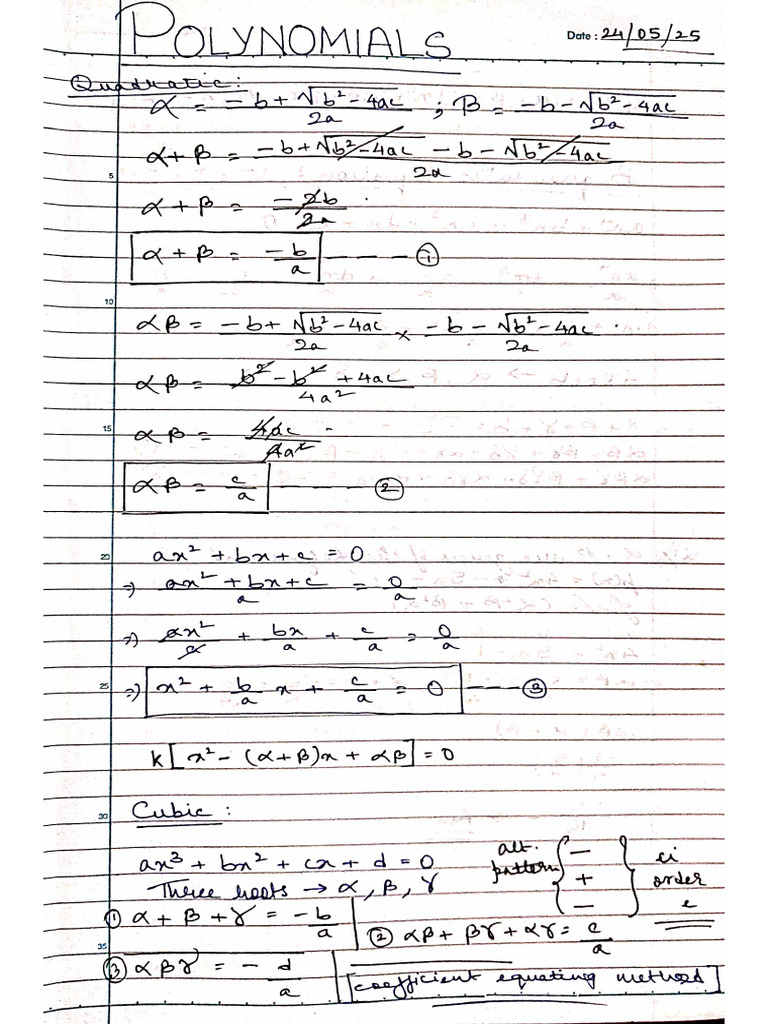 POLYNOMIALS
Date: 24/05/25
Quadratic:
α = -b+√b²-4ac / 2a ; β = -b-√b²-4ac / 2a
5
α+β = -b+√b²-4ac - b - √b²-4ac / 2a
α + β = -2b / 2a
α + β = -b/a ---- ①
10
αβ = -b+√b²-4ac / 2a × -b-√b²-4ac / 2a
αβ = b² - b² + 4ac / 4a²
15
αβ = 4ac / 4a²
αβ = c/a ---- ②
20
ax² + bx + c = 0
⇒ ax² + bx + c / a = 0/a
⇒ ax²/a + bx/a + c/a = 0/a
25
⇒ x² + b/a x + c/a = 0 --- ③
k[x² - (α+β)x + αβ] = 0
30
Cubic:
ax³ + bx² + cx + d = 0
Three roots → α, β, γ
alt. pattern { - + - }
order
① α + β + γ = -b/a
② αβ + βγ + αγ = c/a
35
③ αβγ = - d/a
[coefficient equating method]